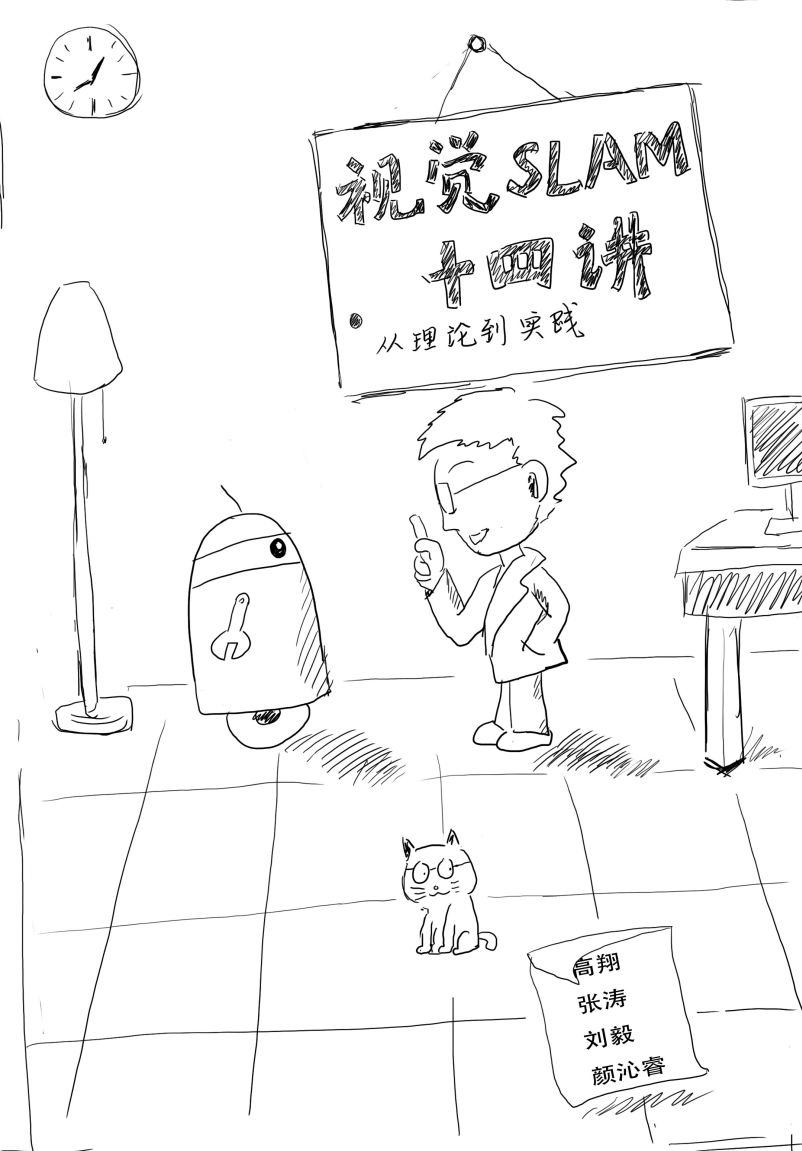 视觉SLAM
十四讲
从理论到实践
高翔
张涛
刘毅
颜沁睿